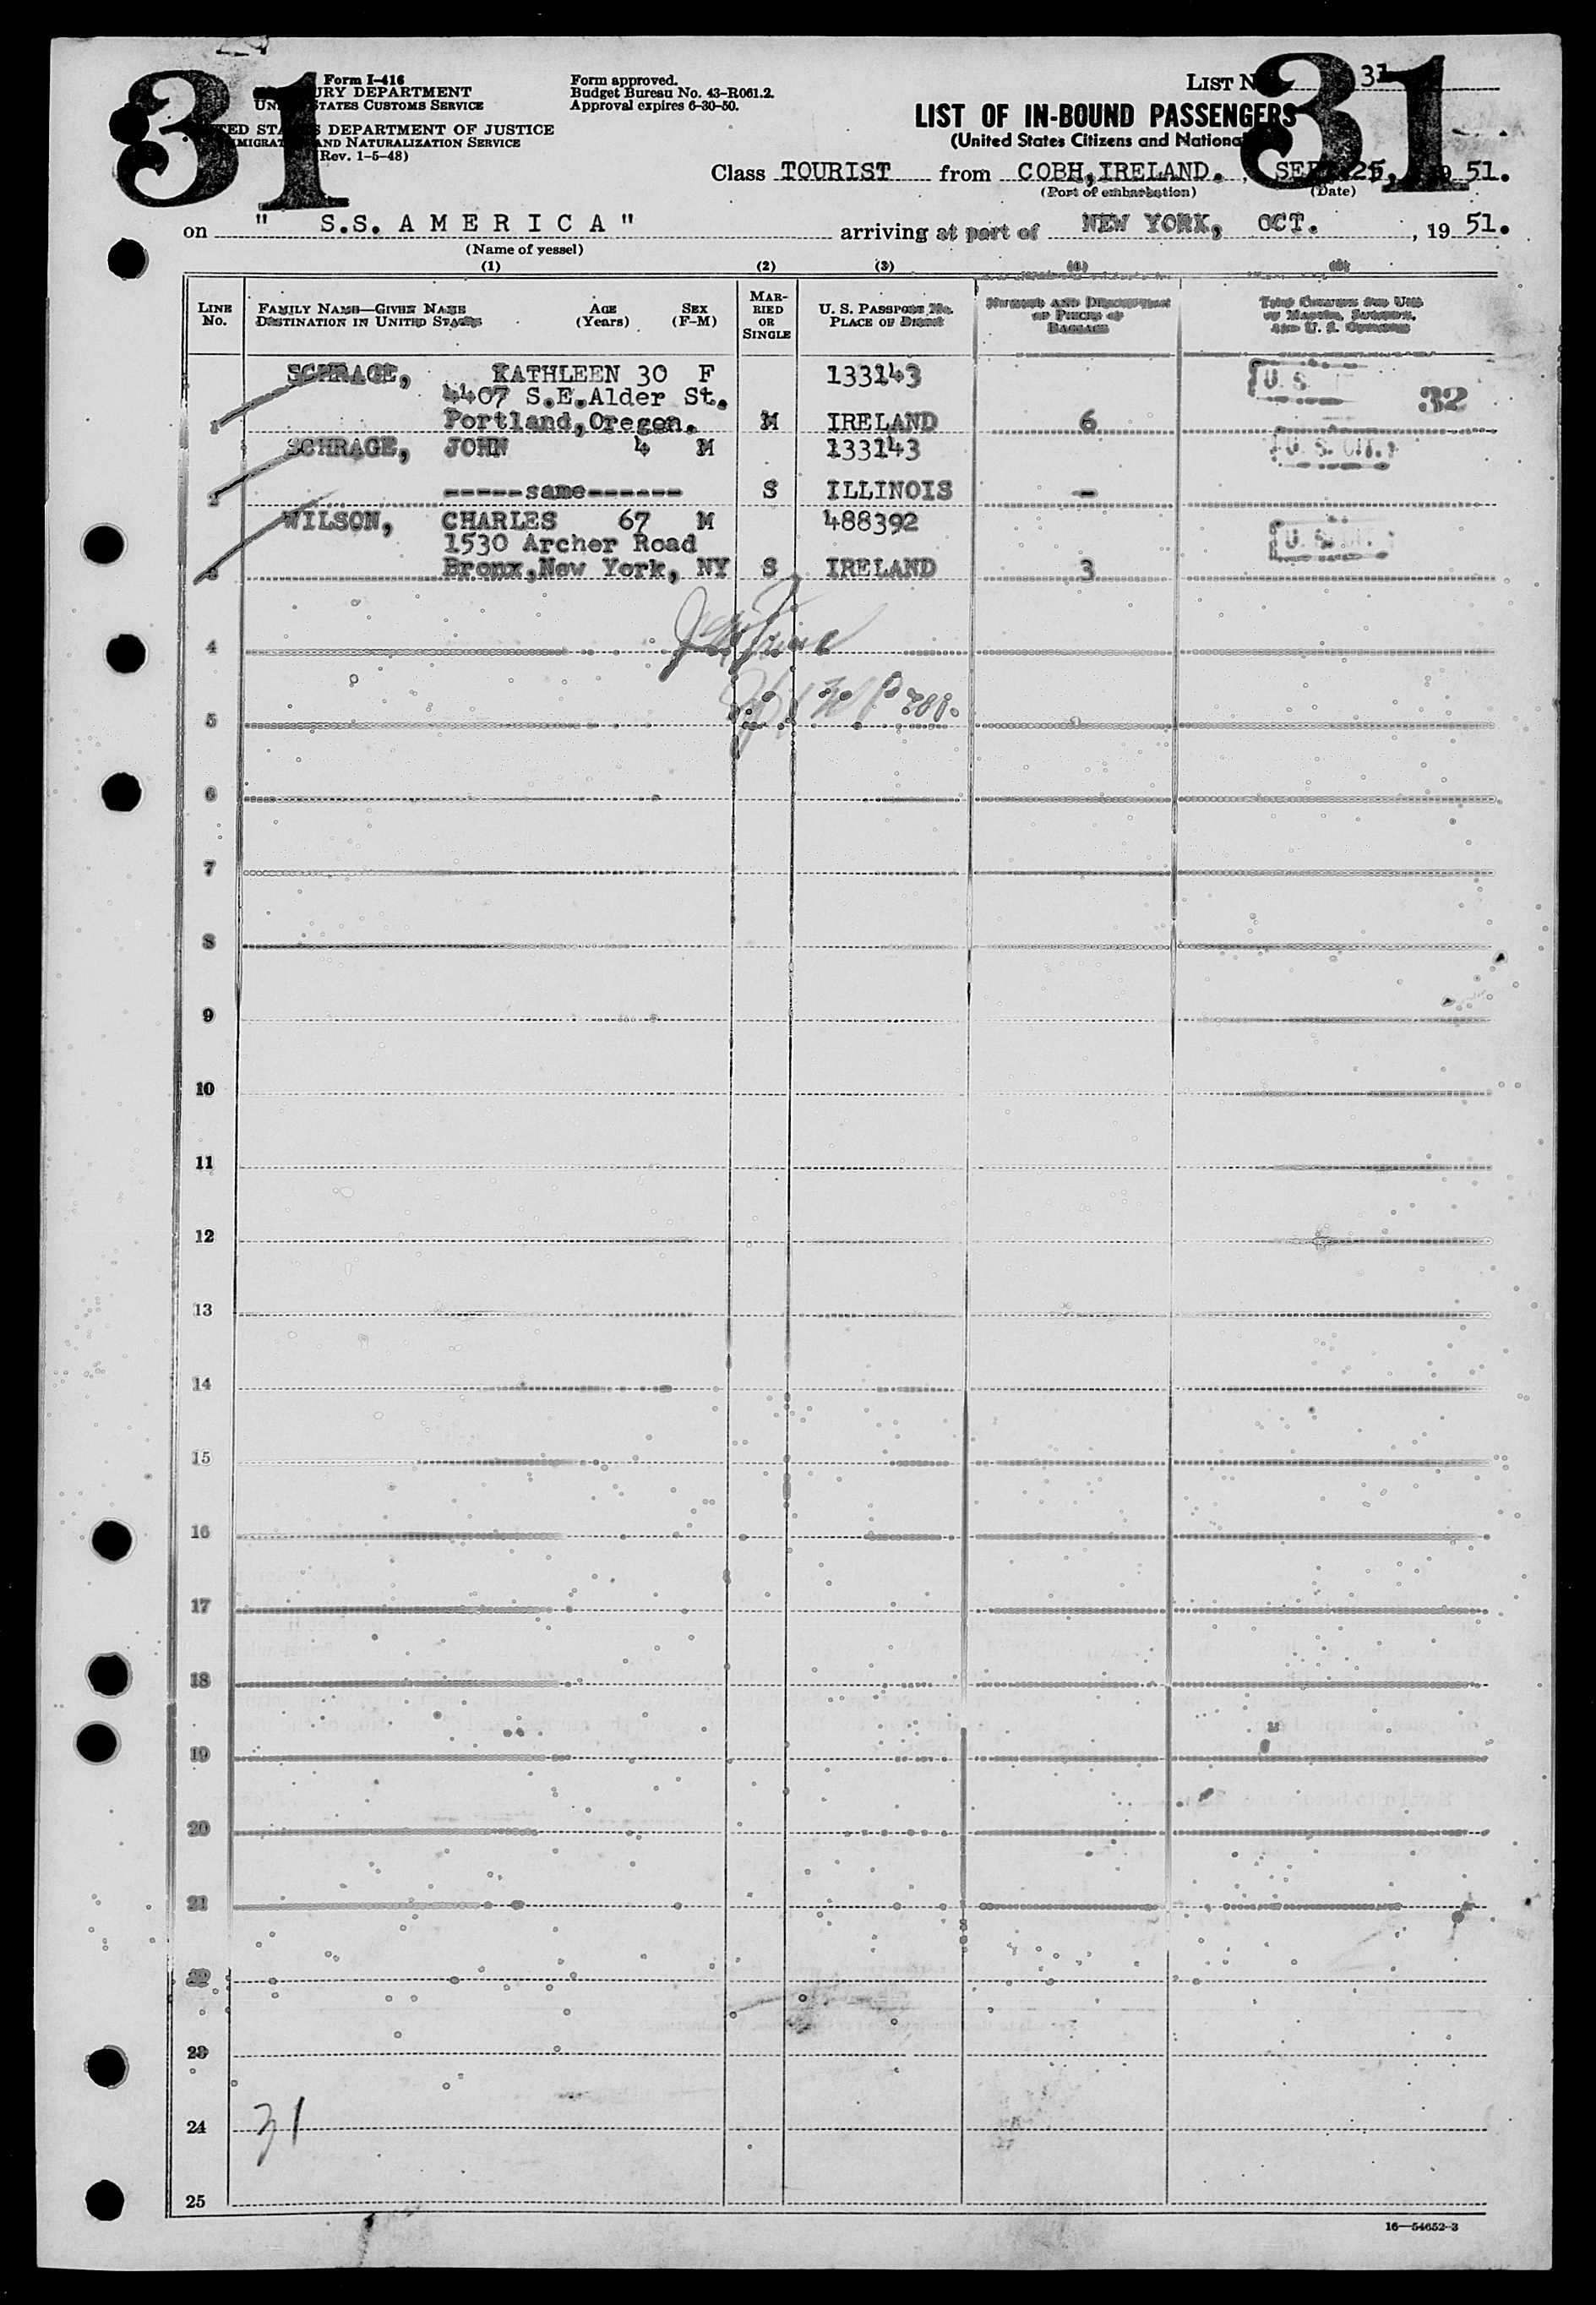 31
31
Form I-416
TREASURY DEPARTMENT
UNITED STATES CUSTOMS SERVICE
UNITED STATES DEPARTMENT OF JUSTICE
IMMIGRATION AND NATURALIZATION SERVICE
(Rev. 1-5-48)
Form approved.
Budget Bureau No. 43-R061.2.
Approval expires 6-30-50.
LIST No. 31
LIST OF IN-BOUND PASSENGERS
(United States Citizens and Nationals)
Class TOURIST from COBH, IRELAND. , SEPT. 25, 19 51.
(Port of embarkation) (Date)
on " S.S. A M E R I C A " arriving at port of NEW YORK, OCT. , 19 51.
(Name of vessel)
(1) (2) (3) (4) (5)
LINE No. FAMILY NAME—GIVEN NAME DESTINATION IN UNITED STATES AGE (Years) SEX (F-M) MARRIED OR SINGLE U. S. PASSPORT No. PLACE OF BIRTH NUMBER AND DESCRIPTION OF PIECES OF BAGGAGE THIS COLUMN FOR USE OF MASTER, SURGEON, AND U. S. OFFICERS
SCHRAGE, KATHLEEN 30 F 133143 U. S.
4407 S.E.Alder St. 32
1 Portland,Oregon. M IRELAND 6
SCHRAGE, JOHN 4 M 133143 U. S. CIT.
2 -----same------ S ILLINOIS -
WILSON, CHARLES 67 M 488392 U. S.
1530 Archer Road
3 Bronx,New York, NY S IRELAND 3
4
5
6
7
8
9
10
11
12
13
14
15
16
17
18
19
20
21
22
23
24 31
25
16—54652-3